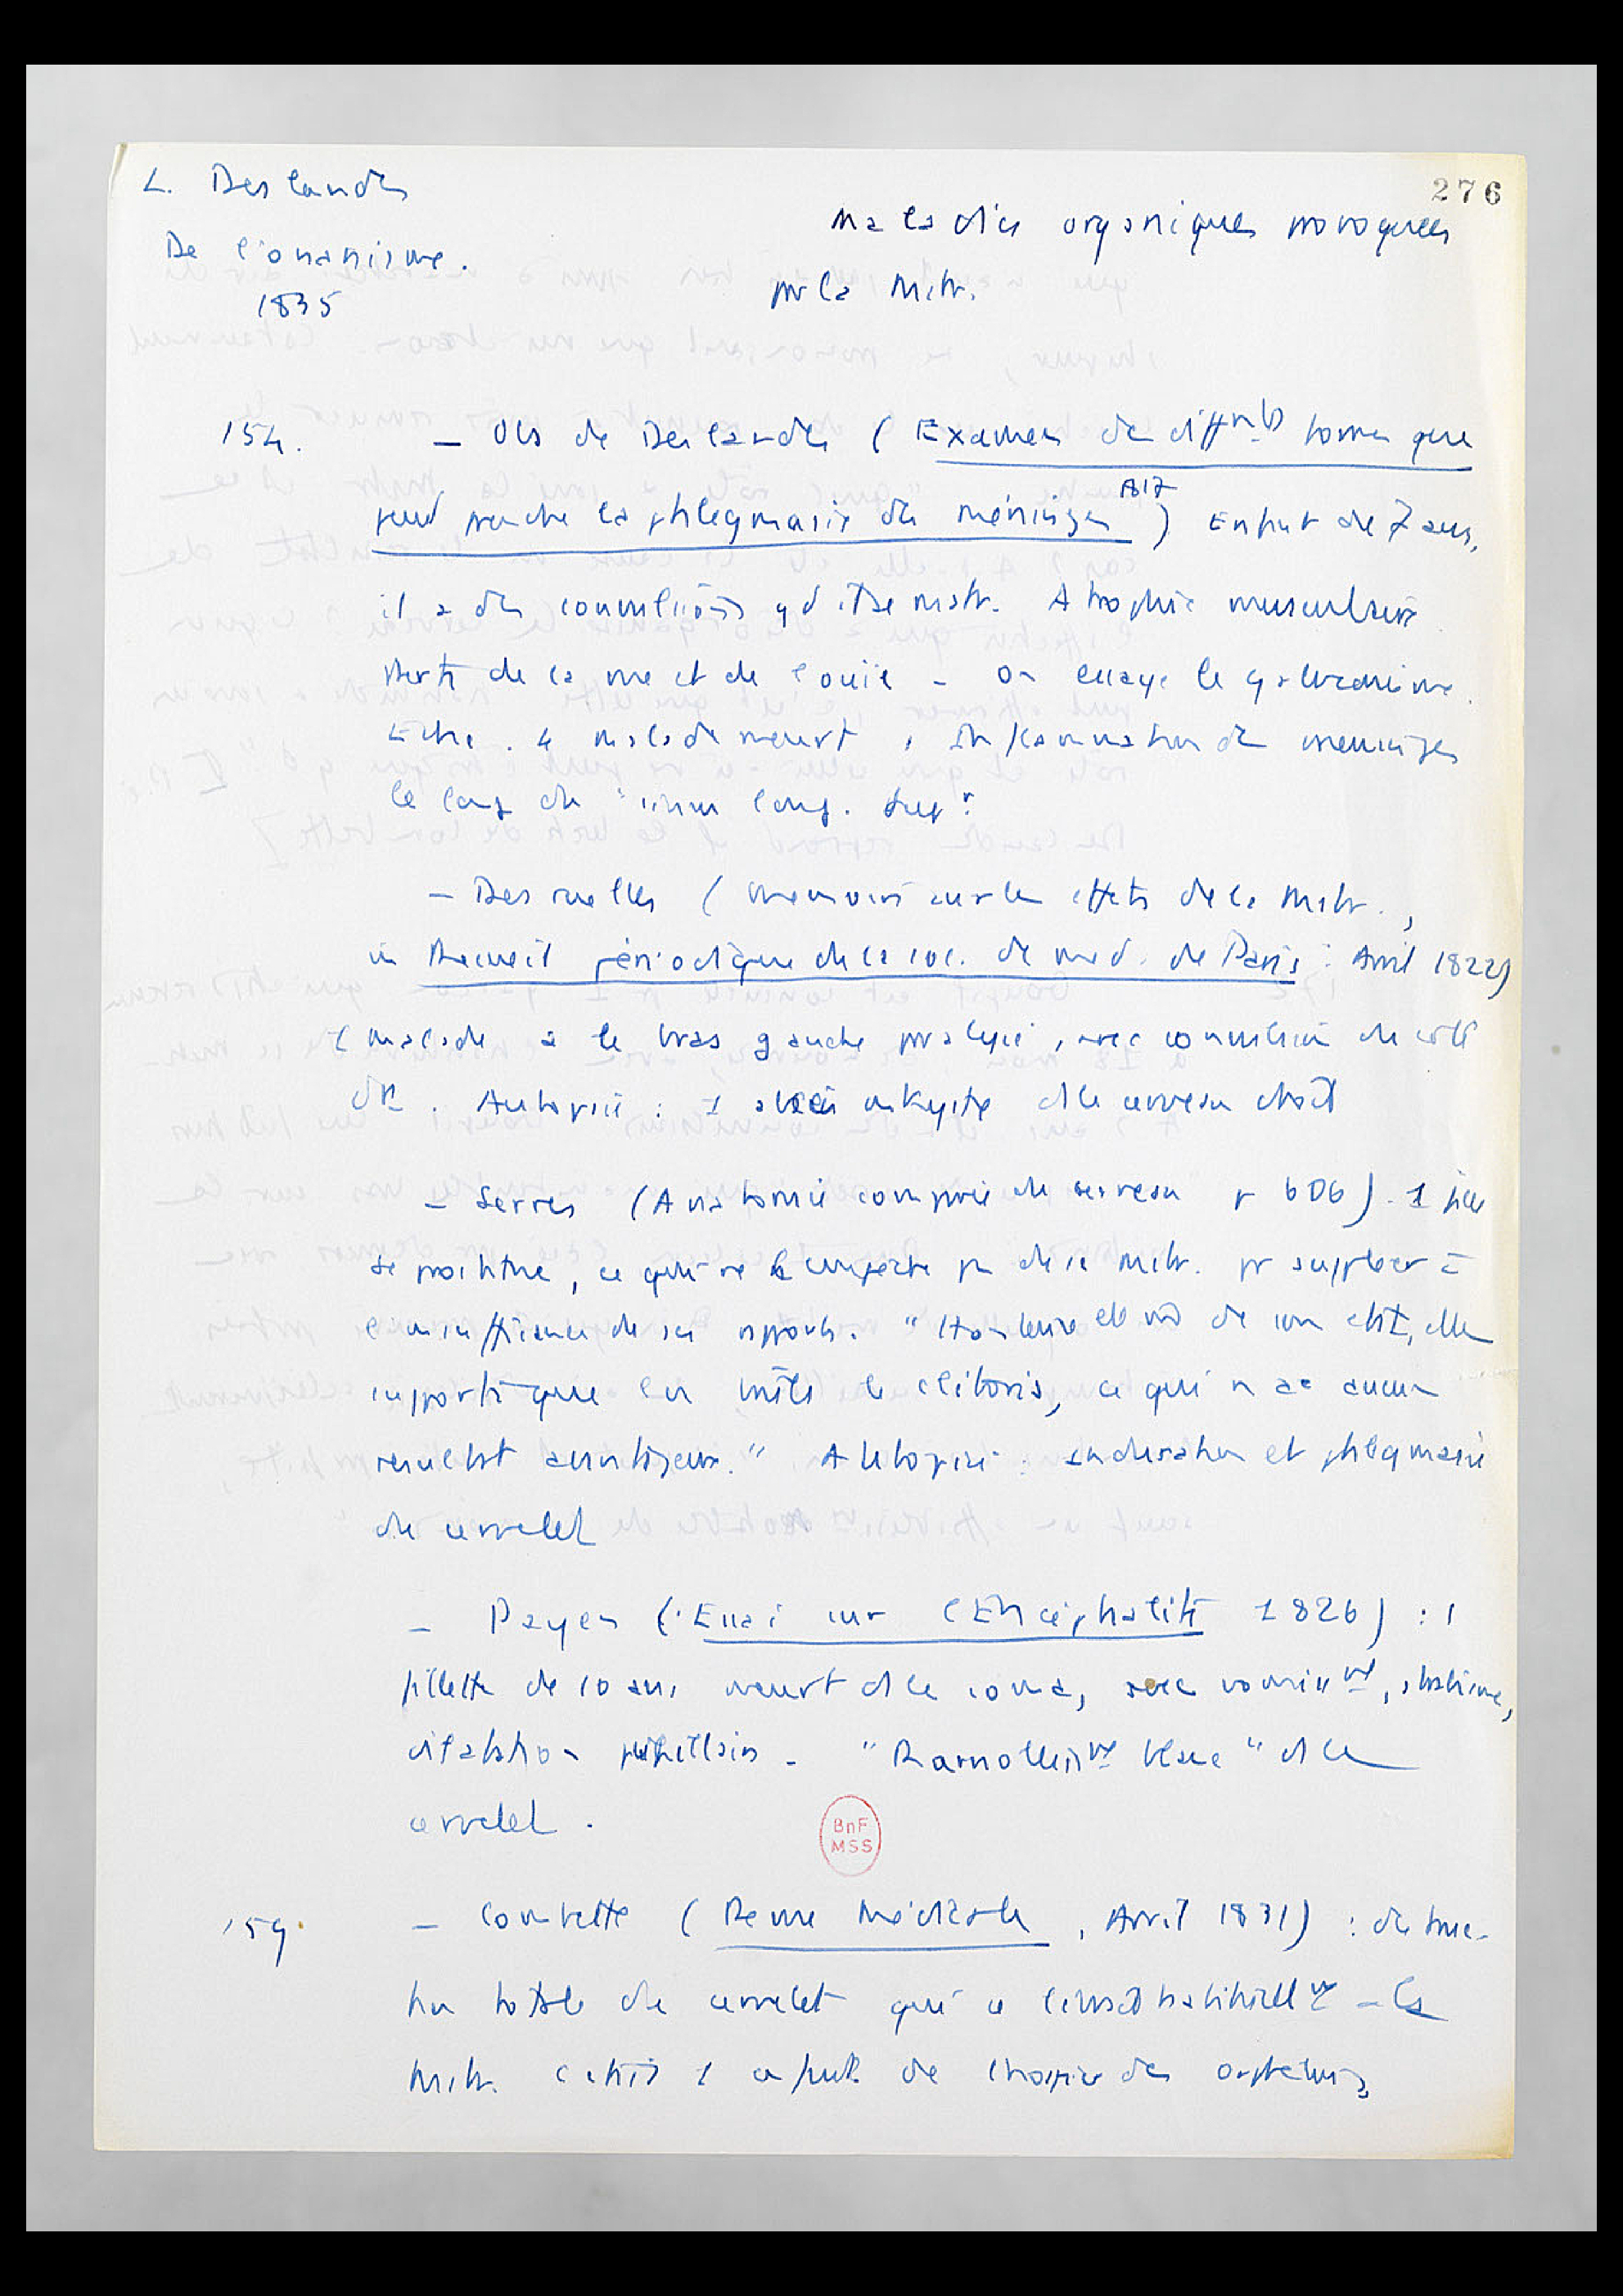 276
L. Deslandes
De l'onanisme.
1835
Maladies organiques provoquées
par la Mast.
154. – Obs de Deslandes (Examen des diffnts formes que
peut prendre la phlegmasie des méninges 1817) Enfant de 7 ans,
il a des convulsions qd il se mast. Atrophie musculaire
Perte de la vue et de l'ouïe – On essaye le galvanisme.
Echec. Le malade meurt, inflammation des meninges
le long du sinus long. supr.
– Desruelles (Memoire sur les effets de la Mast.,
in Recueil périodique de la soc. de med. de Paris : Avril 1822)
1 malade a le bras gauche paralysé, avec convulsion du côté
dt. Autopsie : 1 abcès enkysté ds le cerveau droit
– Serres (Anatomie comparée du cerveau p 606) - 1 fille
se prostitue, ce qui ne l'empeche pas de se Mast. pr suppleer à
l'insuffisance de ses rapports. "Honteuse elle-m de son état, elle
supporte que l'on brûle le clitoris, ce qui n'a aucun
resultat avantageux." Autopsie : induration et phlegmasie
du cervelet
– Payen (Essai sur l'Encéphalite 1826) : 1
fillette de 10 ans meurt ds le coma, avec vomisst, strabisme,
dilatation pupillaire – "Ramollisst blanc" ds le
cervelet.
BnF
MSS
159. – Combette (Revue Médicale, Avril 1831) : destruc-
tion totale du cervelet qui se liqusait habituellt – la
Mast. c'était 1 enfant de l'hospice des orphelins,